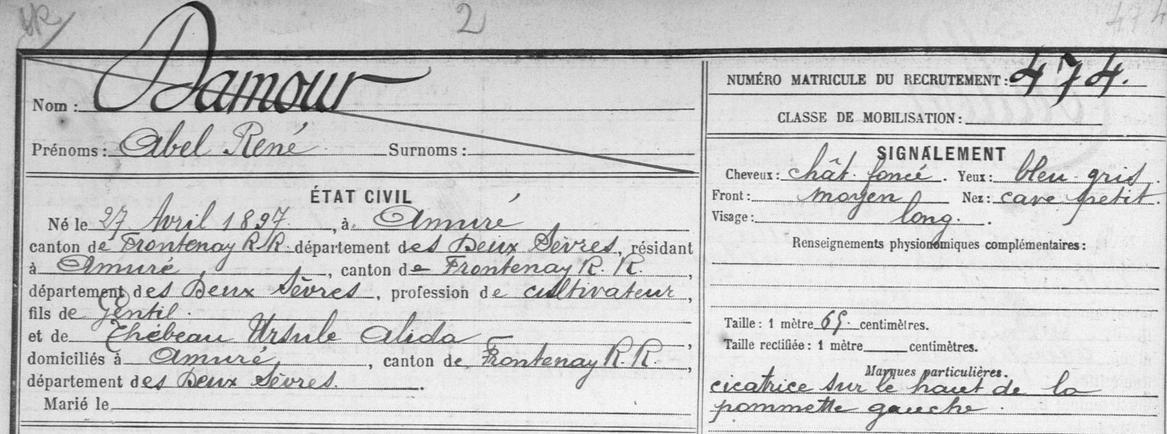 2
474
Nom : Damour
Prénoms : Abel René Surnoms :
ÉTAT CIVIL
Né le 27 Avril 1897, à Amuré
canton de Frontenay R.R. département des Deux Sèvres, résidant
à Amuré, canton de Frontenay R. R.,
département des Deux Sèvres, profession de cultivateur,
fils de Gentil
et de Thébeau Ursule Alida,
domiciliés à Amuré, canton de Frontenay R. R.,
département des Deux Sèvres.
Marié le
NUMÉRO MATRICULE DU RECRUTEMENT : 474.
CLASSE DE MOBILISATION :
SIGNALEMENT
Cheveux : chât foncé. Yeux : bleu gris.
Front : moyen Nez : cave petit.
Visage : long.
Renseignements physionomiques complémentaires :
Taille : 1 mètre 65 centimètres.
Taille rectifiée : 1 mètre centimètres.
Marques particulières.
cicatrice sur le haut de la
pommette gauche.